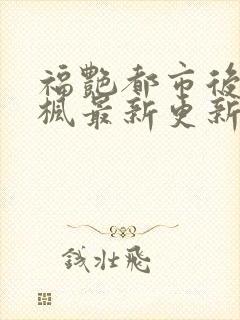 福艷都市後
楓最新更新
钱壮飛